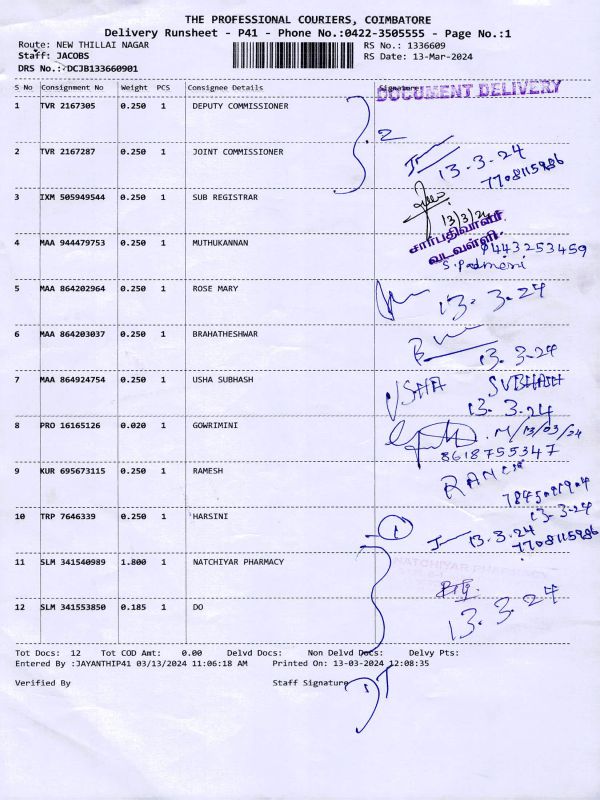 THE PROFESSIONAL COURIERS, COIMBATORE
Delivery Runsheet - P41 - Phone No.:0422-3505555 - Page No.:1
Route: NEW THILLAI NAGAR RS No.: 1336609
Staff: JACOBS RS Date: 13-Mar-2024
DRS No.:-DCJB133660901
S No Consignment No Weight PCS Consignee Details Signature
DOCUMENT DELIVERY
1 TVR 2167305 0.250 1 DEPUTY COMMISSIONER
2
2 TVR 2167287 0.250 1 JOINT COMMISSIONER
13-3-24
7708115986
3 IXM 505949544 0.250 1 SUB REGISTRAR
13/3/24
சார்பதிவாளர்
வடவள்ளி
4 MAA 944479753 0.250 1 MUTHUKANNAN
9443253459
S. Padmini
5 MAA 864202964 0.250 1 ROSE MARY
13-3-24
6 MAA 864203037 0.250 1 BRAHATHESHWAR
13-3-24
7 MAA 864924754 0.250 1 USHA SUBHASH
USHA SUBHASH
13-3-24
8 PRO 16165126 0.020 1 GOWRIMINI
13/03/24
8618755347
9 KUR 695673115 0.250 1 RAMESH
13-3-24
10 TRP 7646339 0.250 1 HARSINI
1
13-3-24
7708115986
11 SLM 341540989 1.800 1 NATCHIYAR PHARMACY
NATCHIYAR PHARMACY
12 SLM 341553850 0.185 1 DO
13-3-24
Tot Docs: 12 Tot COD Amt: 0.00 Delvd Docs: Non Delvd Docs: Delvy Pts:
Entered By :JAYANTHIP41 03/13/2024 11:06:18 AM Printed On: 13-03-2024 12:08:35
Verified By Staff Signature